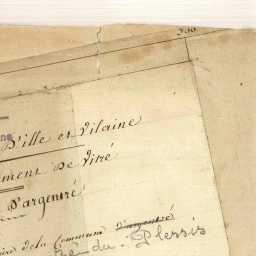 D'ille et Vilaine
ment De Vitré
D'argentré
de la Commune D'argentré
du Plessis